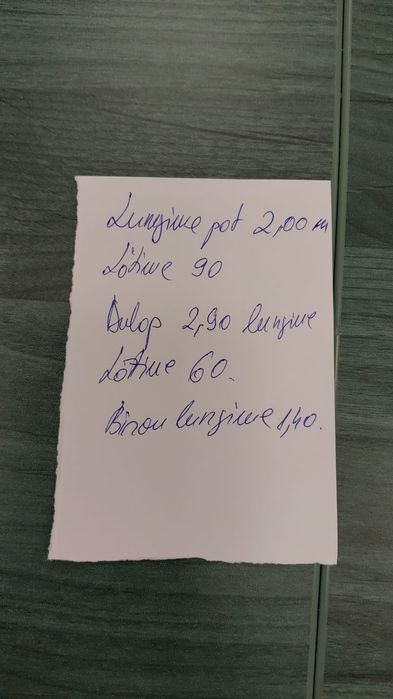 Lungime pat 2,00 m
Lățime 90
Dulap 2,90 lungime
Lățime 60.
Birou lungime 1,40.